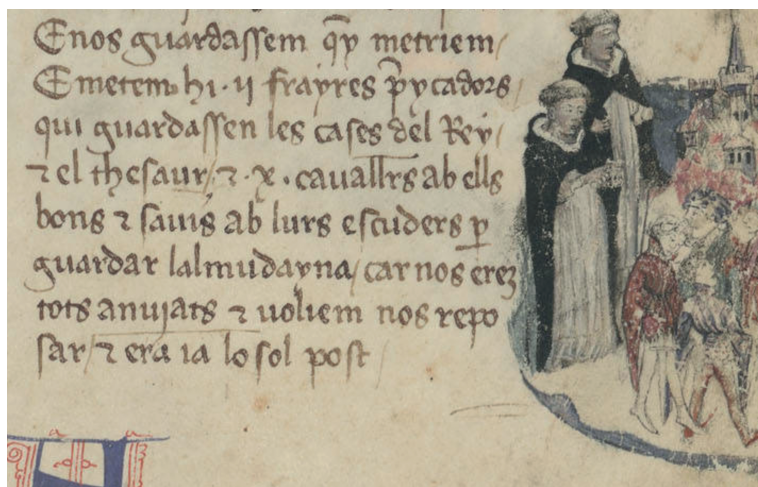 Enos guardassem qⁱ y metriem
E metem hi · ii frayres p̃ycadors
qui guardassen les cases del Rey
⁊ el thesaur / ⁊ · x · cauall̅rs ab ells
bons ⁊ sauis ab lurs escuders ꝑ
guardar lalmudayna / car nos erem
tots anuiats ⁊ uoliem nos repo
sar / ⁊ era ia lo sol post